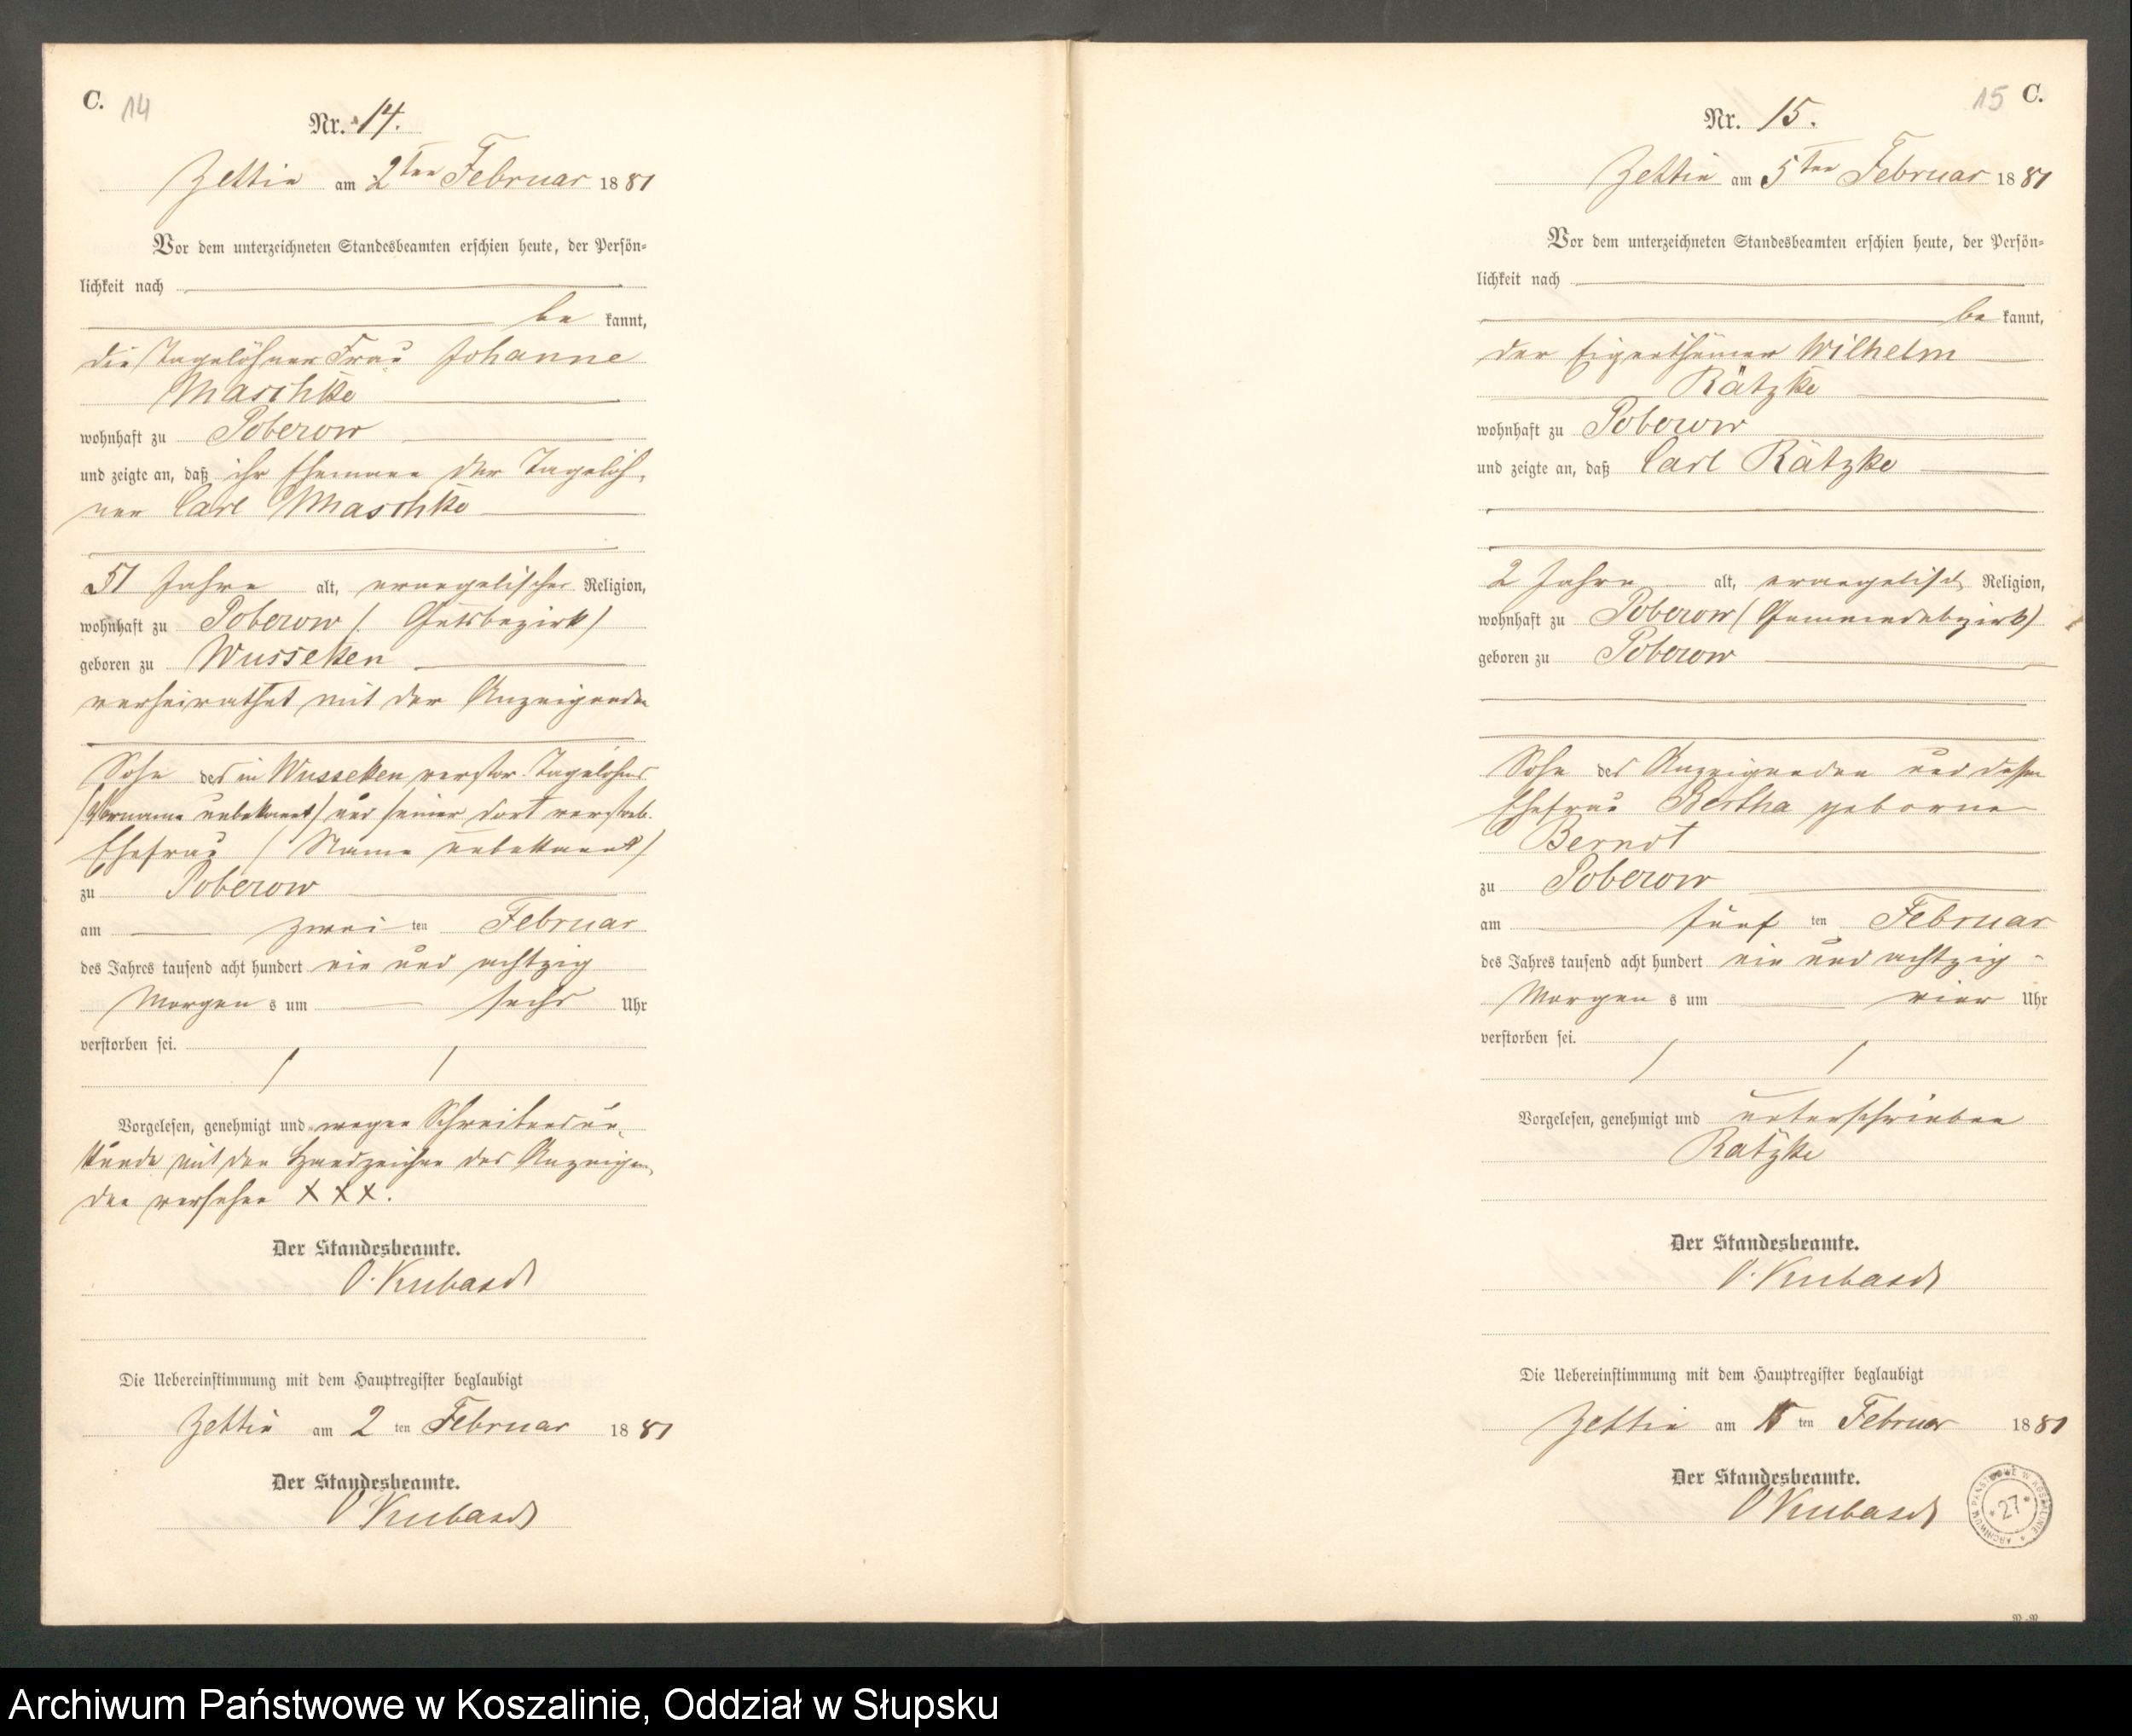 C. 14
Nr. 14.
Zettin am 2ten Februar 1881
Vor dem unterzeichneten Standesbeamten erschien heute, der Persön-
lichkeit nach
be kannt,
die Tagelöhner Frau Johanne
Maschke
wohnhaft zu Poberow
und zeigte an, daß ihr Ehemann der Tagelöh-
ner Carl Maschke
51 Jahre alt, evangelischer Religion,
wohnhaft zu Poberow /: Gutsbezirk /
geboren zu Wusseken
verheirathet mit der Anzeigenden
Sohn des in Wusseken verstor. Tagelöhners
/ Vorname unbekannt / und seiner dort verstorb.
Ehefrau / Name unbekannt /
zu Poberow
am zwei ten Februar
des Jahres tausend acht hundert ein und achtzig
Morgen s um sechs Uhr
verstorben sei.
Vorgelesen, genehmigt und wegen Schreibensun-
kunde mit den Handzeichen der Anzeigen-
den versehen XXX.
Der Standesbeamte.
O. Kubasch
Die Uebereinstimmung mit dem Hauptregister beglaubigt
Zettin am 2 ten Februar 1881
Der Standesbeamte.
O Kubasch
15 C.
Nr. 15.
Zettin am 5ten Februar 1881
Vor dem unterzeichneten Standesbeamten erschien heute, der Persön-
lichkeit nach
be kannt,
der Eigenthümer Wilhelm
Rätzke
wohnhaft zu Poberow
und zeigte an, daß Carl Rätzke
2 Jahre alt, evangelisch Religion,
wohnhaft zu Poberow / Gemeindebezirk /
geboren zu Poberow
Sohn des Anzeigenden und dessen
Ehefrau Bertha geborne
Berndt
zu Poberow
am fünf ten Februar
des Jahres tausend acht hundert ein und achtzig
Morgen s um vier Uhr
verstorben sei.
Vorgelesen, genehmigt und unterschrieben
Ratzke
Der Standesbeamte.
O. Kubasch
Die Uebereinstimmung mit dem Hauptregister beglaubigt
Zettin am 5 ten Februar 1881
Der Standesbeamte.
O Kubasch
ARCHIWUM PAŃSTWOWE W KOSZALINIE * 27 *
Archiwum Państwowe w Koszalinie, Oddział w Słupsku